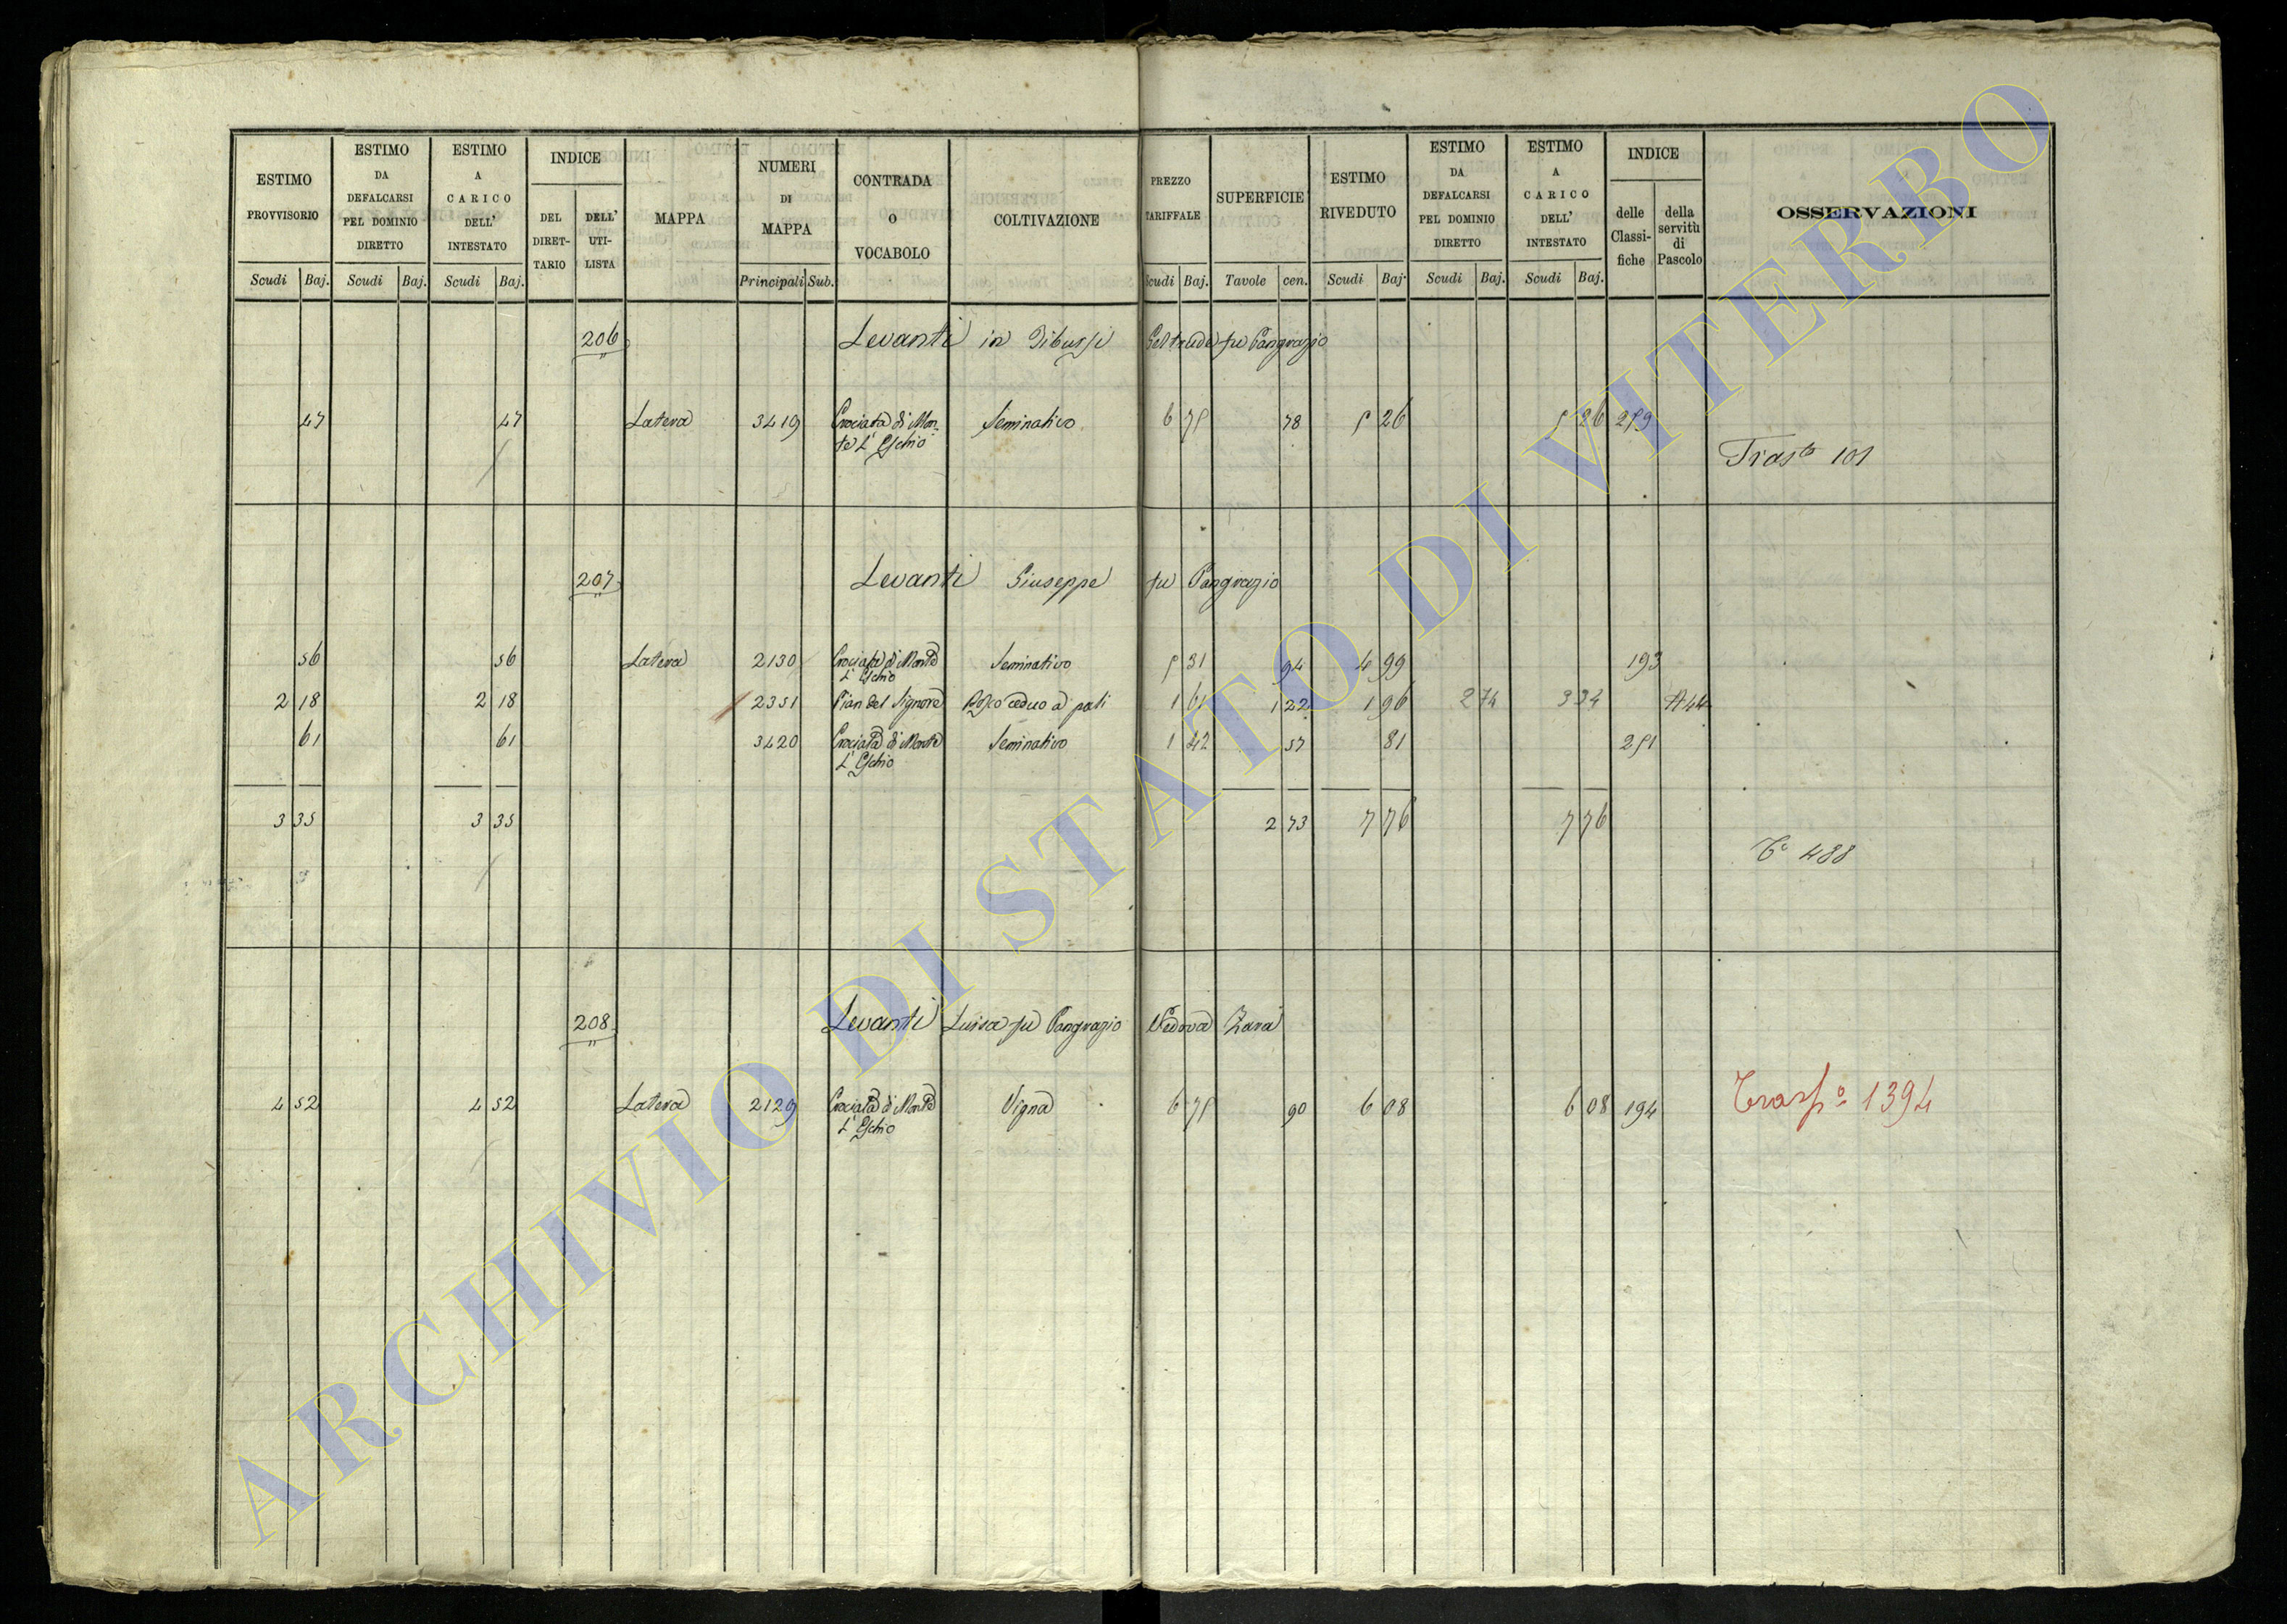 ESTIMO PROVVISORIO
ESTIMO DA DEFALCARSI PEL DOMINIO DIRETTO
ESTIMO A CARICO DELL' INTESTATO
INDICE
DEL DIRETTARIO
DELL' UTILISTA
MAPPA
NUMERI DI MAPPA
CONTRADA O VOCABOLO
COLTIVAZIONE
PREZZO TARIFFALE
SUPERFICIE
ESTIMO RIVEDUTO
ESTIMO DA DEFALCARSI PEL DOMINIO DIRETTO
ESTIMO A CARICO DELL' INTESTATO
INDICE
delle Classifiche
della servitù di Pascolo
OSSERVAZIONI
Scudi Baj. Scudi Baj. Scudi Baj. Principali Sub. Scudi Baj. Tavole cen. Scudi Baj. Scudi Baj. Scudi Baj.
206 Levanti in Tibussi Geltrude fu Pangrazio
47 47 Latera 3419 Crociata di Mon- Seminativo 6 75 78 5 26 5 26 259
te L' Eschio
Trasto 101
207 Levanti Giuseppe fu Pangrazio
56 56 Latera 2130 Crociata di Monte Seminativo 5 31 94 4 99 193
L' Eschio
2 18 2 18 2351 Pian del Signore Bosco ceduo a pali 1 61 1 22 1 96 2 74 3 34 A44
61 61 3420 Crociata di Monte Seminativo 1 42 57 81 251
L' Eschio
3 35 3 35 2 73 7 76 7 76
To 488
208 Levanti Luisa fu Pangrazio Vedova Zara
4 52 4 52 Latera 2129 Crociata di Monte Vigna 6 75 90 6 08 6 08 194 Traspo 1394
L' Eschio
ARCHIVIO DI STATO DI VITERBO